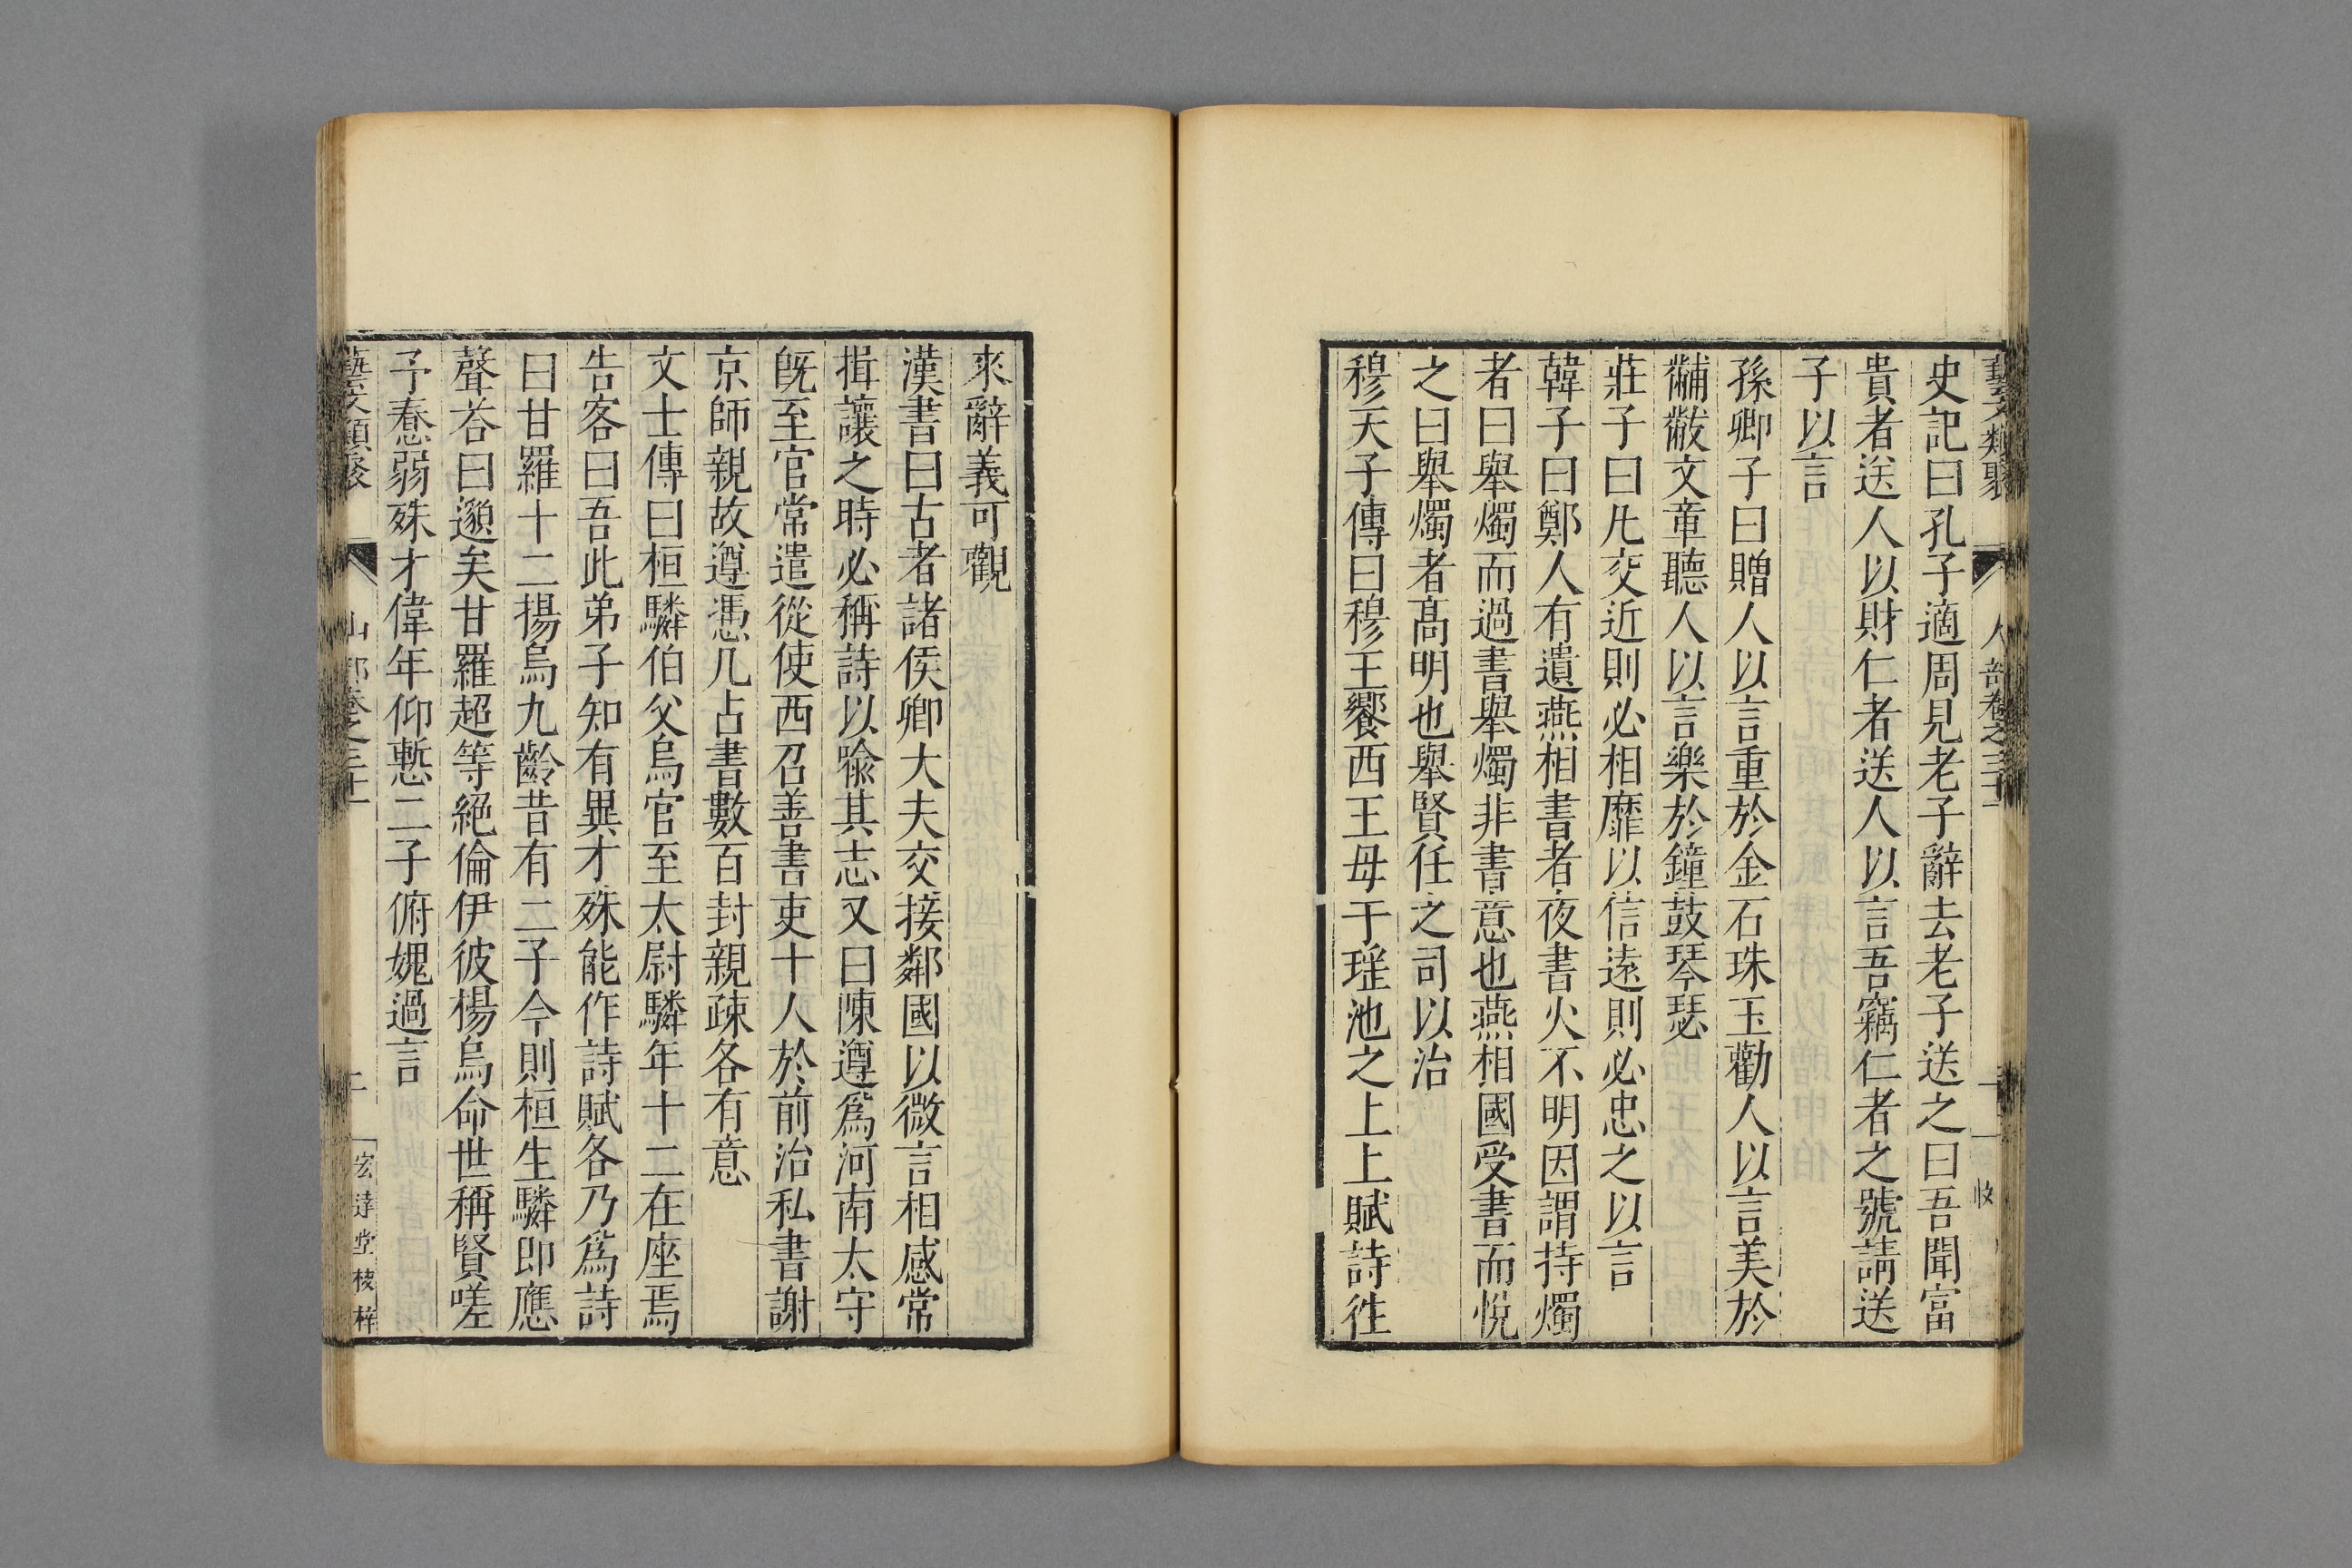 藝文類聚 人部卷之三十一 一
史記曰孔子適周見老子辭去老子送之曰吾聞富
貴者送人以財仁者送人以言吾竊仁者之號請送
子以言
孫卿子曰贈人以言重於金石珠玉勸人以言美於
黼黻文章聽人以言樂於鐘鼓琴瑟
莊子曰凡交近則必相靡以信遠則必忠之以言
韓子曰鄭人有遺燕相書者夜書火不明因謂持燭
者曰舉燭而過書舉燭非書意也燕相國受書而悅
之曰舉燭者高明也舉賢任之司以治
穆天子傳曰穆王饗西王母于瑤池之上上賦詩徃
來辭義可觀
漢書曰古者諸侯卿大夫交接鄰國以微言相感常
揖讓之時必稱詩以喩其志又曰陳遵爲河南太守
旣至官常遣從使西召善書吏十人於前治私書謝
京師親故遵憑几占書數百封親疎各有意
文士傳曰桓驎伯父烏官至太尉驎年十二在座焉
告客曰吾此弟子知有異才殊能作詩賦各乃爲詩
曰甘羅十二揚烏九齡昔有二子今則桓生驎即應
聲荅曰邈矣甘羅超等絕倫伊彼楊烏命世稱賢嗟
予惷弱殊才偉年仰慙二子俯媿過言
藝文類聚 卷之三十一 二 宏達堂棱梓